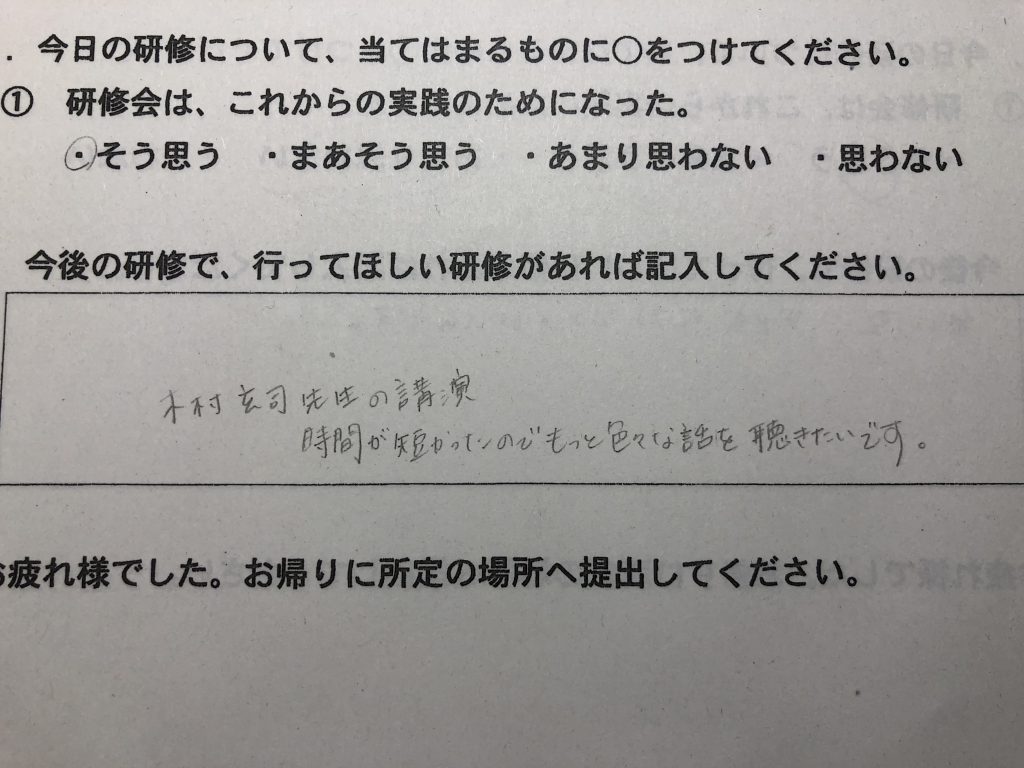 . 今日の研修について、当てはまるものに○をつけてください。
① 研修会は、これからの実践のためになった。
・そう思う ・まあそう思う ・あまり思わない ・思わない
今後の研修で、行ってほしい研修があれば記入してください。
木村玄司先生の講演
時間が短かったのでもっと色々な話を聴きたいです。
お疲れ様でした。お帰りに所定の場所へ提出してください。